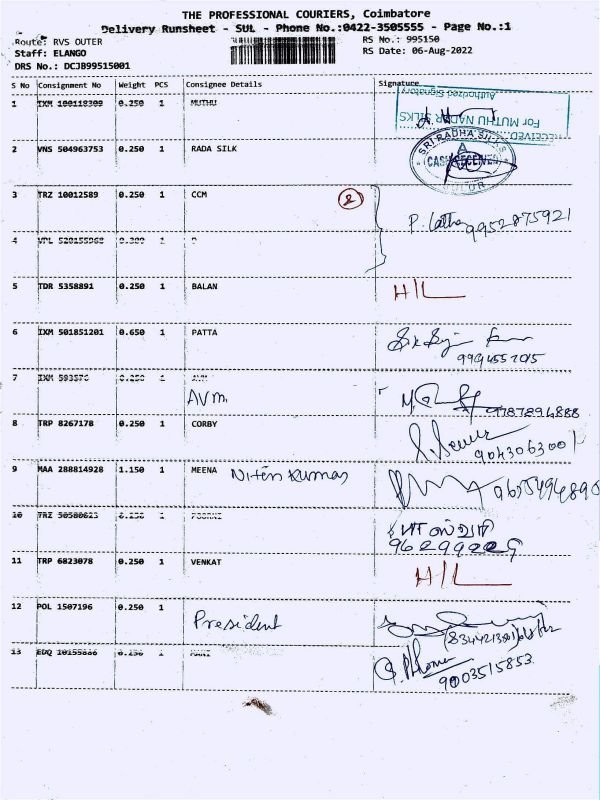 THE PROFESSIONAL COURIERS, Coimbatore
Delivery Runsheet - SUL - Phone No.:0422-3505555 - Page No.:1
Route: RVS OUTER
RS No.: 995150
Staff: ELANGO
RS Date: 06-Aug-2022
DRS No.: DCJB99515001
S No Consignment No Weight PCS Consignee Details Signature
1 IXM 100118309 0.250 1 MUTHU
Authorized Signatory
For MUTHU NAGAR SILKS
RECEIVED
2 VNS 504963753 0.250 1 RADA SILK
SRI RADHA SILKS
CASH RECEIVED
SULUR
3 TRZ 10012589 0.250 1 CCM 2
P. Latha 9952875921
4 VPL 520155968 0.300 1
5 TDR 5358891 0.250 1 BALAN H/L
6 IXM 501851201 0.650 1 PATTA
7 IXM 0.250 1
AVM.
8 TRP 8267178 0.250 1 CORBY
9043063001
9 MAA 288814928 1.150 1 MEENA Niten Kumar
10 TRZ 1
11 TRP 6823078 0.250 1 VENKAT H/L
12 POL 1507196 0.250 1
President
13 EDQ 1
9003515853